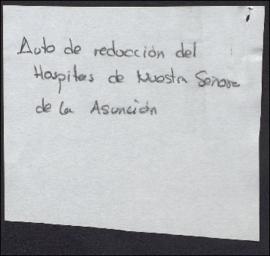 Auto de reducción del
Hospitas de Nuestra Señora
de la Asunción